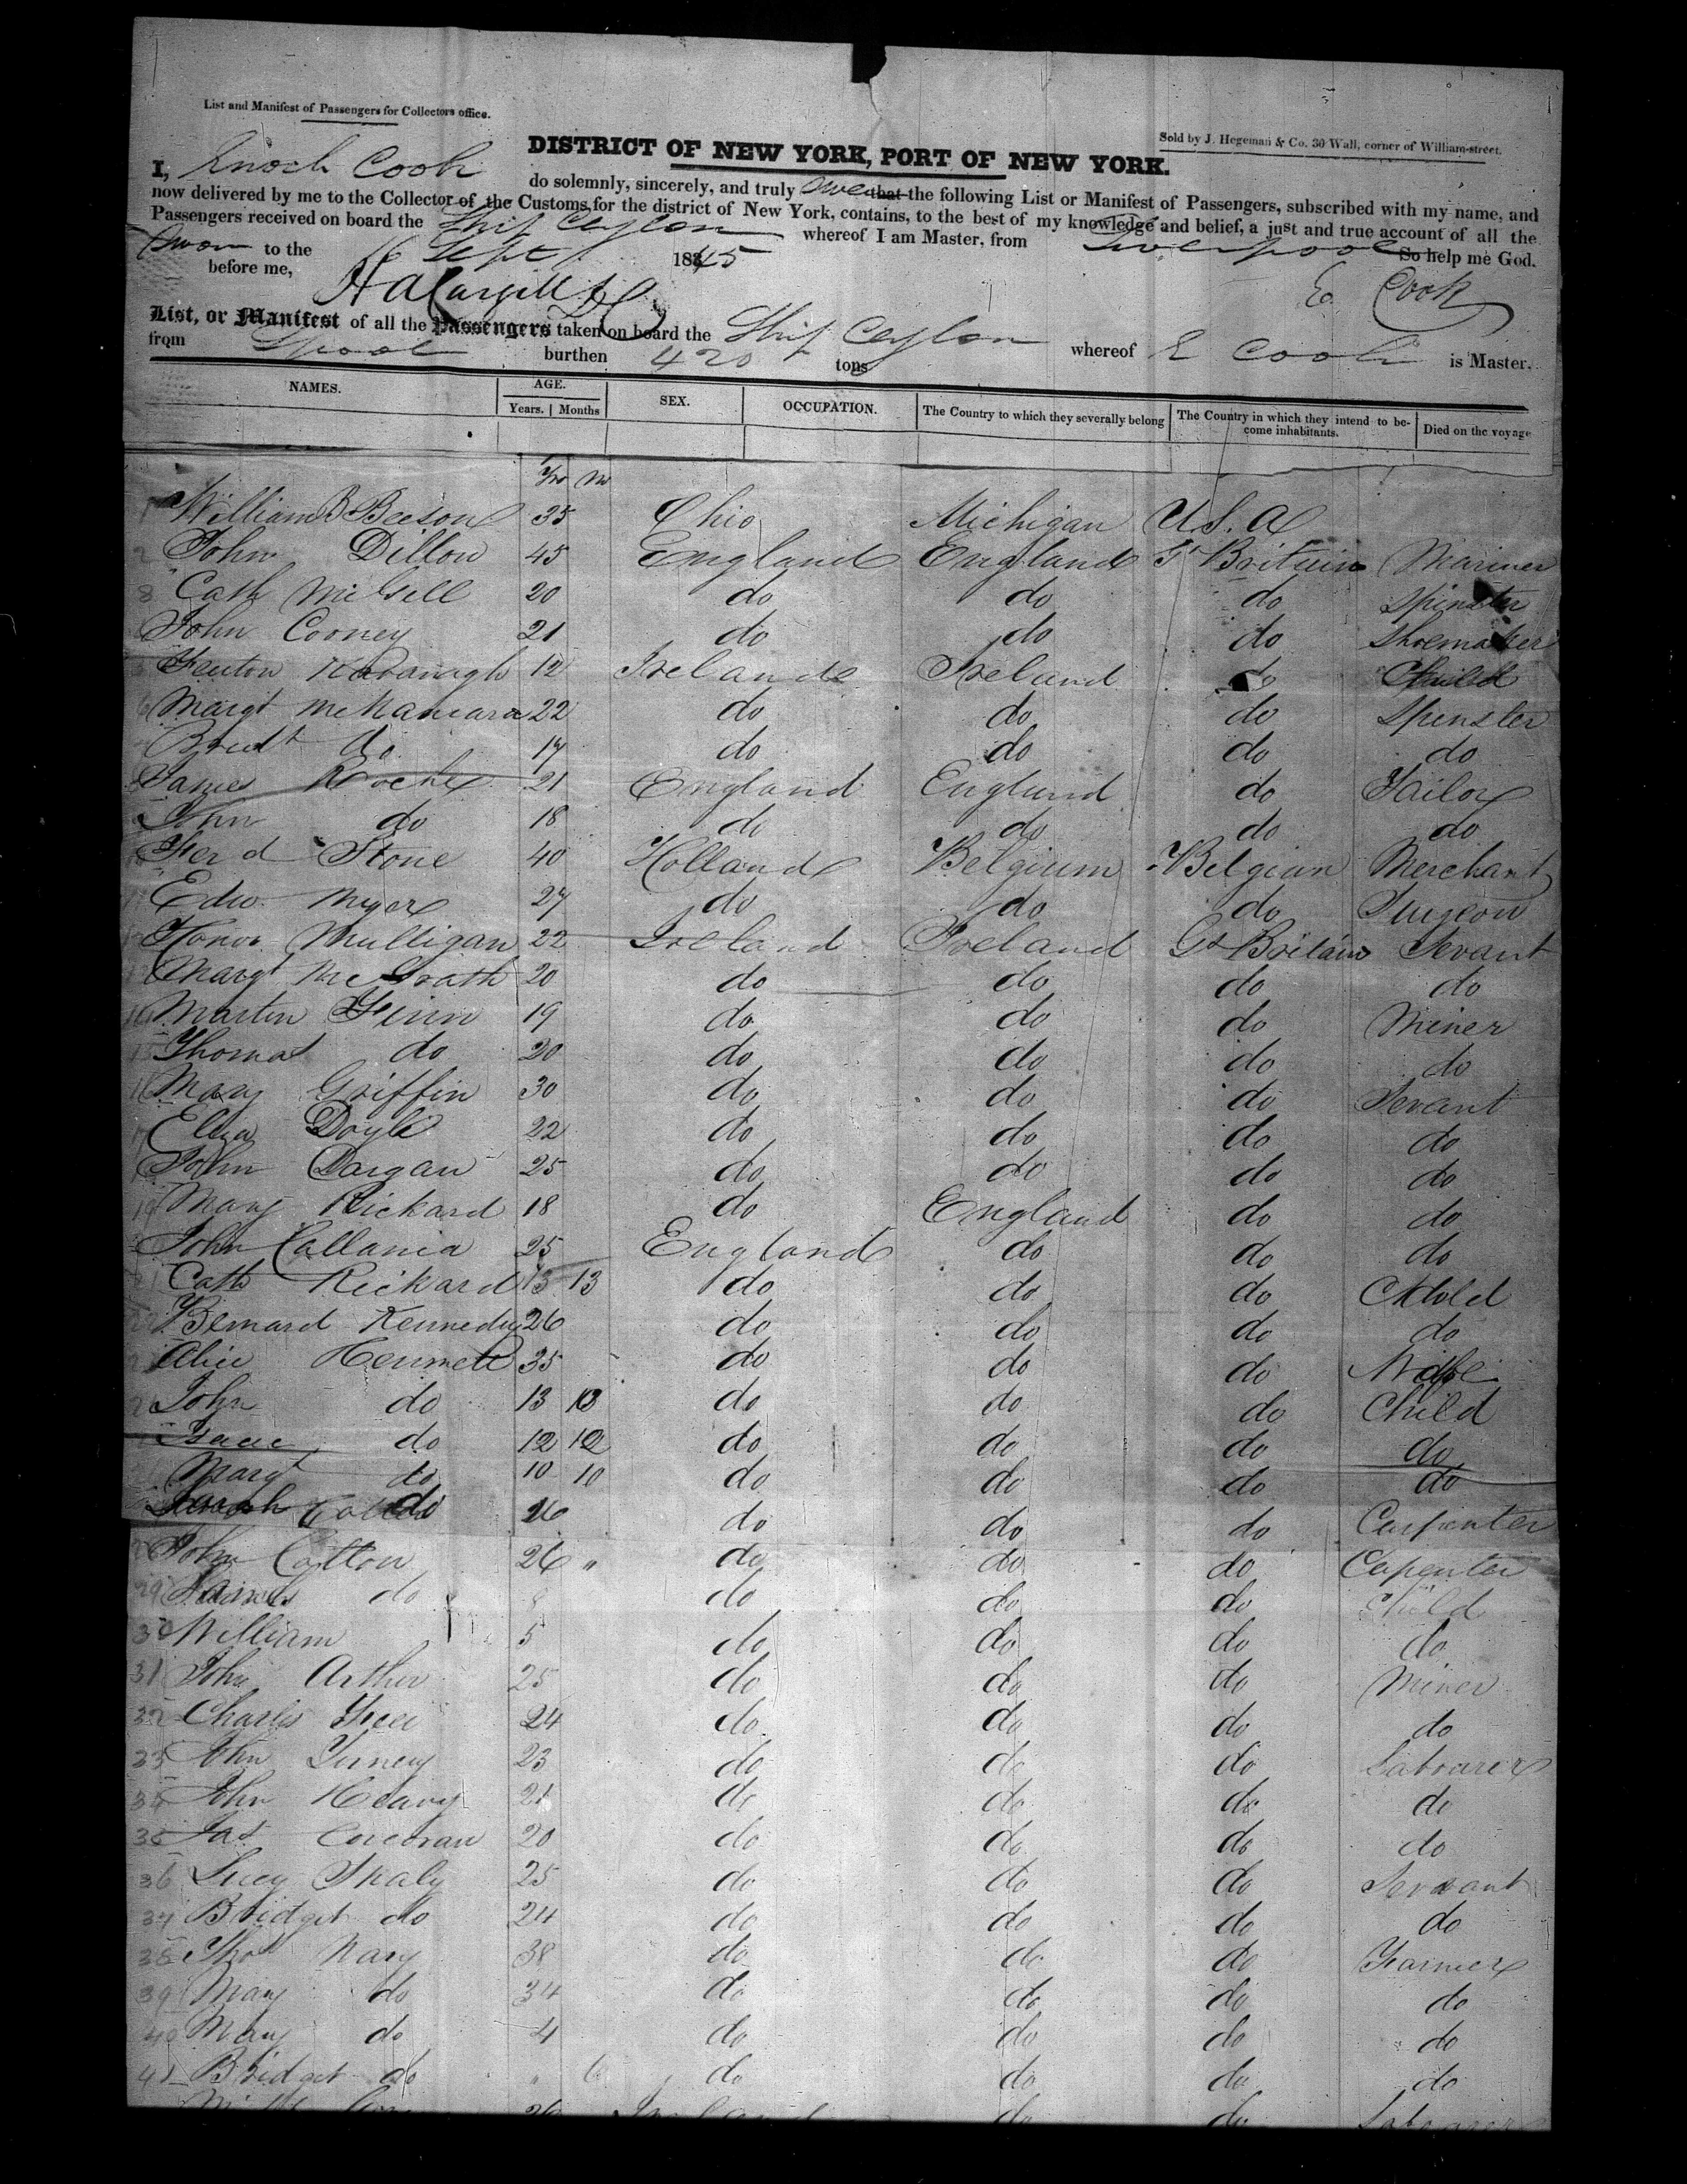 List and Manifest of Passengers for Collectors office.
Sold by J. Hegeman & Co. 30 Wall, corner of William-street.
DISTRICT OF NEW YORK, PORT OF NEW YORK.
I, Enoch Cook do solemnly, sincerely, and truly swear that the following List or Manifest of Passengers, subscribed with my name, and
now delivered by me to the Collector of the Customs for the district of New York, contains, to the best of my knowledge and belief, a just and true account of all the
Passengers received on board the Ship Ceylon whereof I am Master, from Liverpool
Sworn to the 6 Sept 1845 So help me God.
before me, E. Cook
List, or Manifest of all the Passengers taken on board the Ship Ceylon whereof E Cook is Master,
from Lpool burthen 420 tons
NAMES. AGE. SEX. OCCUPATION. The Country to which they severally belong The Country in which they intend to become inhabitants. Died on the voyage
Years. Months
Yrs M
1 William B Beeson 35 Ohio Michigan U.S.A
2 John Dillon 45 England England Gt Britain Mariner
Cath McGell 20 do do do Spinster
John Cooney 21 do do do Shoemaker
Fenton Kavanagh 12 Ireland Ireland do Child
Margt McNamara 22 do do do Spinster
Bridt do 17 do do do do
James Roche 21 England England do Tailor
John do 18 do do do do
Ferd Stone 40 Holland Belgium Belgian Merchant
Edw Myer 27 do do do Surgeon
Honor Mulligan 22 Ireland Ireland Gt Britain Servant
Margt McGrath 20 do do do do
Martin Finn 19 do do do Miner
15 Thomas do 20 do do do do
16 Mary Griffin 30 do do do Servant
Eliza Doyle 22 do do do do
John Dargan 25 do do do do
19 Mary Rickard 18 do England do do
John Callania 25 England do do do
Cath Rickard 13 13 do do do Child
Bernard Kennedy 26 do do do do
Alice Hennett 35 do do do Wife
John do 13 13 do do do Child
Isaac do 12 12 do do do do
Margt do 10 10 do do do do
26 do do do Carpenter
John Cotton 26 " do do do Capenter
29 James do 8 do do do Child
30 William 5 do do do do
31 John Arthur 25 do do do Miner
32 Charles 24 do do do do
33 John 23 do do do Labourer
34 John Heavy 21 do do do do
35 Jas Corcoran 20 do do do do
36 Lucy Skaly 25 do do do Servant
37 Bridget do 24 do do do do
38 Thos Nary 38 do do do Farmer
39 Mary do 34 do do do do
40 Mary do 4 do do do do
41 Bridget do " 6 do do do do
26 Ireland do do Labourer